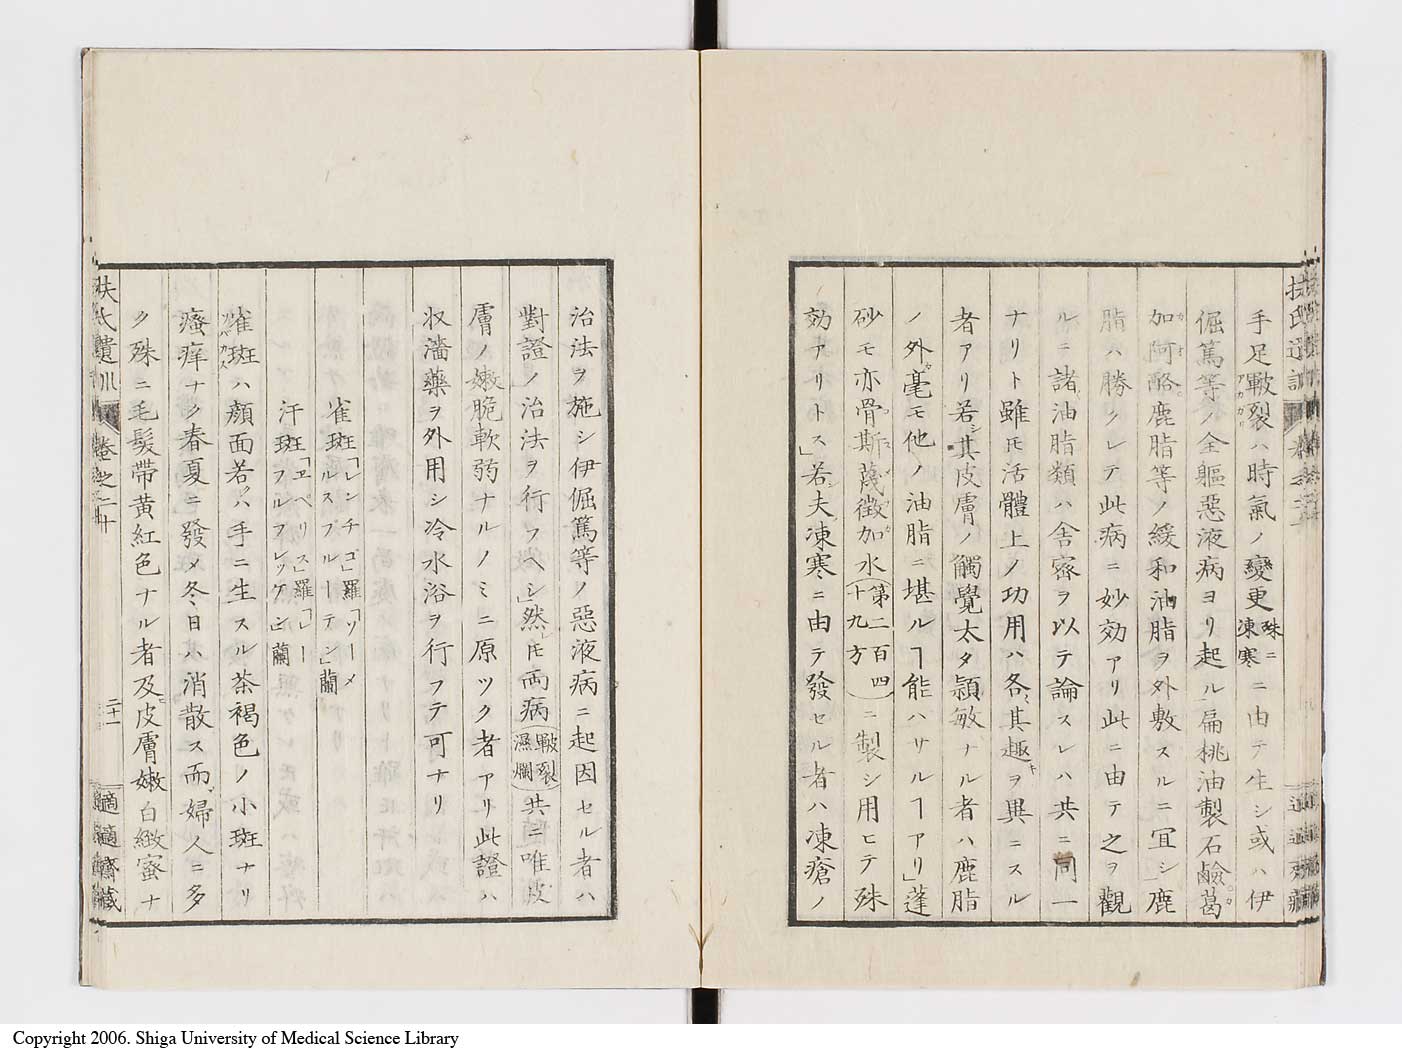 手足皸裂ハ時氣ノ變更殊ニ凍寒ニ由テ生シ或ハ伊
倔篤等ノ全軀惡液病ヨリ起ル」扁桃油製石鹼葛
加阿酪鹿脂等ノ緩和油脂ヲ外敷スルニ宜シ」鹿
脂ハ勝クレテ此病ニ妙効アリ此ニ由テ之ヲ觀
ルニ諸油脂類ハ舎密ヲ以テ論スレハ共ニ同一
ナリト雖モ活體上ノ功用ハ各其趣ヲ異ニスル
者アリ若シ其皮膚ノ觸覺太タ頴敏ナル者ハ鹿脂
ノ外毫モ他ノ油脂ニ堪ルヿ能ハサルヿアリ」蓬
砂モ亦骨斯蔑徴加水(第二百四十九方)ニ製シ用ヒテ殊
効アリトス」若夫凍寒ニ由テ發セル者ハ凍瘡ノ
治法ヲ施シ伊倔篤等ノ惡液病ニ起因セル者ハ
對證ノ治法ヲ行フヘシ」然レ𪜈両病(皸裂濕爛)共ニ唯皮
膚ノ嫩脆軟弱ナルノミニ原ツク者アリ此證ハ
収濇藥ヲ外用シ冷水浴ヲ行フテ可ナリ
雀斑「レンチゴ」羅「ソーメルスプルーテン」蘭
汗斑「エペリス」羅「レーフルフレッケン」蘭
雀斑ハ顔面若クハ手ニ生スル茶褐色ノ小斑ナリ
瘙痒ナク春夏ニ發メ冬日ハ消散ス而婦人ニ多
ク殊ニ毛髮帶黄紅色ナル者及皮膚嫩白緻蜜ナ
扶氏遺訓
卷之二十
二十一
適適齋藏